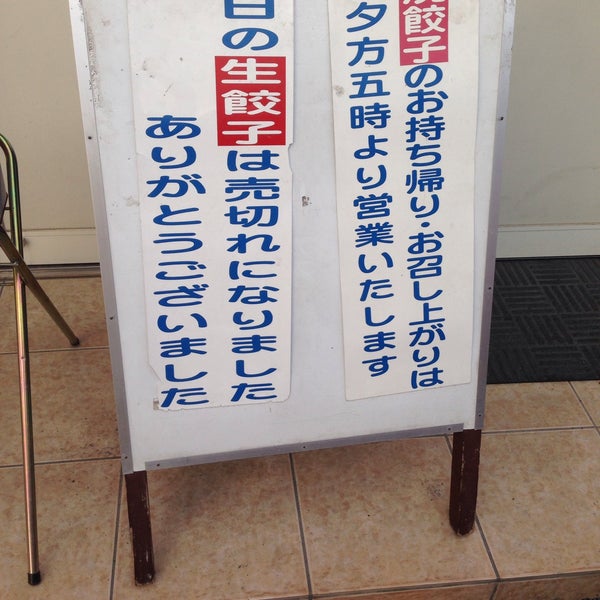 焼餃子のお持ち帰り・お召し上がりは
夕方五時より営業いたします
日の生餃子は売切れになりました
ありがとうございました